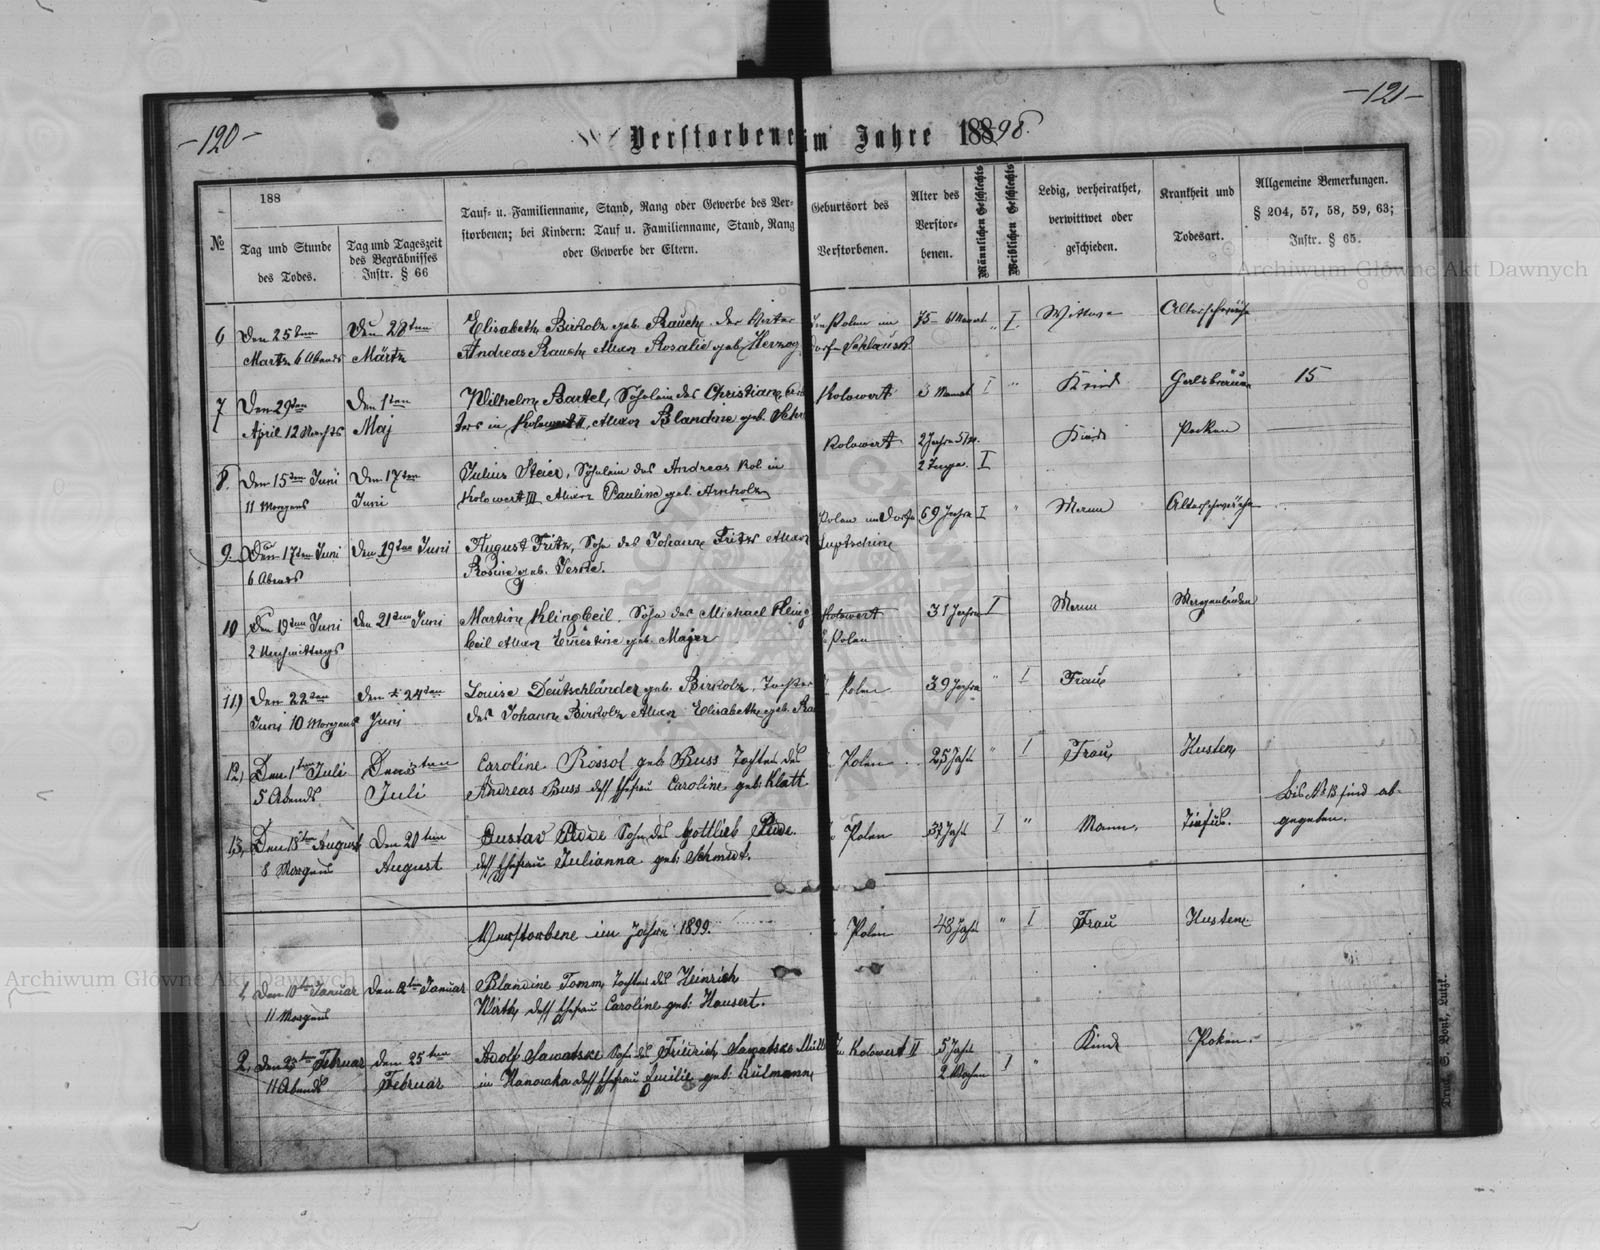 -120-
-121-
Verstorbene im Jahre 188 98.
№
188
Tag und Stunde
des Todes.
Tag und Tageszeit
des Begräbnisses
Instr. § 66
Tauf- u. Familienname, Stand, Rang oder Gewerbe des Ver-
storbenen; bei Kindern: Tauf u. Familienname, Stand, Rang
oder Gewerbe der Eltern.
Geburtsort des
Verstorbenen.
Alter des
Verstor-
benen.
Männlichen Geschlechts
Weiblichen Geschlechts
Ledig, verheirathet,
verwittwet oder
geschieden.
Krankheit und
Todesart.
Allgemeine Bemerkungen.
§ 204, 57, 58, 59, 63;
Instr. § 65.
6 Den 25ten Den 28ten Elisabeth Birkolz geb. Rauch. der Polen im 75 " I Wittwe
Martz 6 Abends Märtz Andreas Rauch Rosalie geb. Herzog
7 Den 29ten Den 1ten Wilhelm Bartel, Söhnlein des Christian Kolowert 3 Monat I " Kind 15
April 12 Maj in Kolowert II, Blandine geb.
8. Den 15ten Juni Den 17ten Julius Steier, Söhnlein des Andreas in Kolowert 2 Jahre I Kind Pocken
11 Morgens Juni Kolowert III Pauline geb. Arnholz 2 Tage.
9 Den 17ten Juni Den 19ten Juni August Fritz, Sohn des Johann Fritz Polen im Dorfe 69 Jahre I " Mann
6 Abends Rosine geb.
10 Den 19ten Juni Den 21ten Juni Martin Klingbeil, Sohn des Michael Kling Kolowert 31 Jahre I Mann
2 Nachmittags beil Ernestine geb. Majer Polen
11) Den 22ten Den 24ten Louise Deutschländer geb. Birkolz, Tochter Polen 39 Jahre " I Frau
Juni 10 Morgens Juni des Johann Birkolz Elisabeth geb. Rau
12, Den 1ten Juli Den 3ten Caroline Rossol geb. Buss Tochter des Polen 25 Jahr " I Frau Husten
5 Abends Juli Andreas Buss dess Ehefrau Caroline geb. Klatt
Bis № 13 sind ab-
gegeben.
13, Den 18ten August Den 20ten Gustav Sohn des Gottlieb Polen 32 Jahr I " Mann. Tiefus.
8 Morgens August dess Ehefrau Julianna geb. Schmidt.
Verstorbene im Jahre 1899.
1, Den 10ten Januar Den 12ten Januar Blandine Tomm Tochter des Heinrich Polen 48 Jahr " I Frau Husten
11 Morgens Wirth dess Ehefrau Caroline geb. Hausert.
2, Den 23ten Februar Den 25ten Adolf Sawatske Sohn des Friedrich Sawatske Müll In Kolowert II 5 Jahr I " Kind Poken
11 Abends Februar in Hanowka dess Ehefrau Emilie geb. Kulmann 2 Wochen
Archiwum Główne Akt Dawnych
Archiwum Główne Akt Dawnych